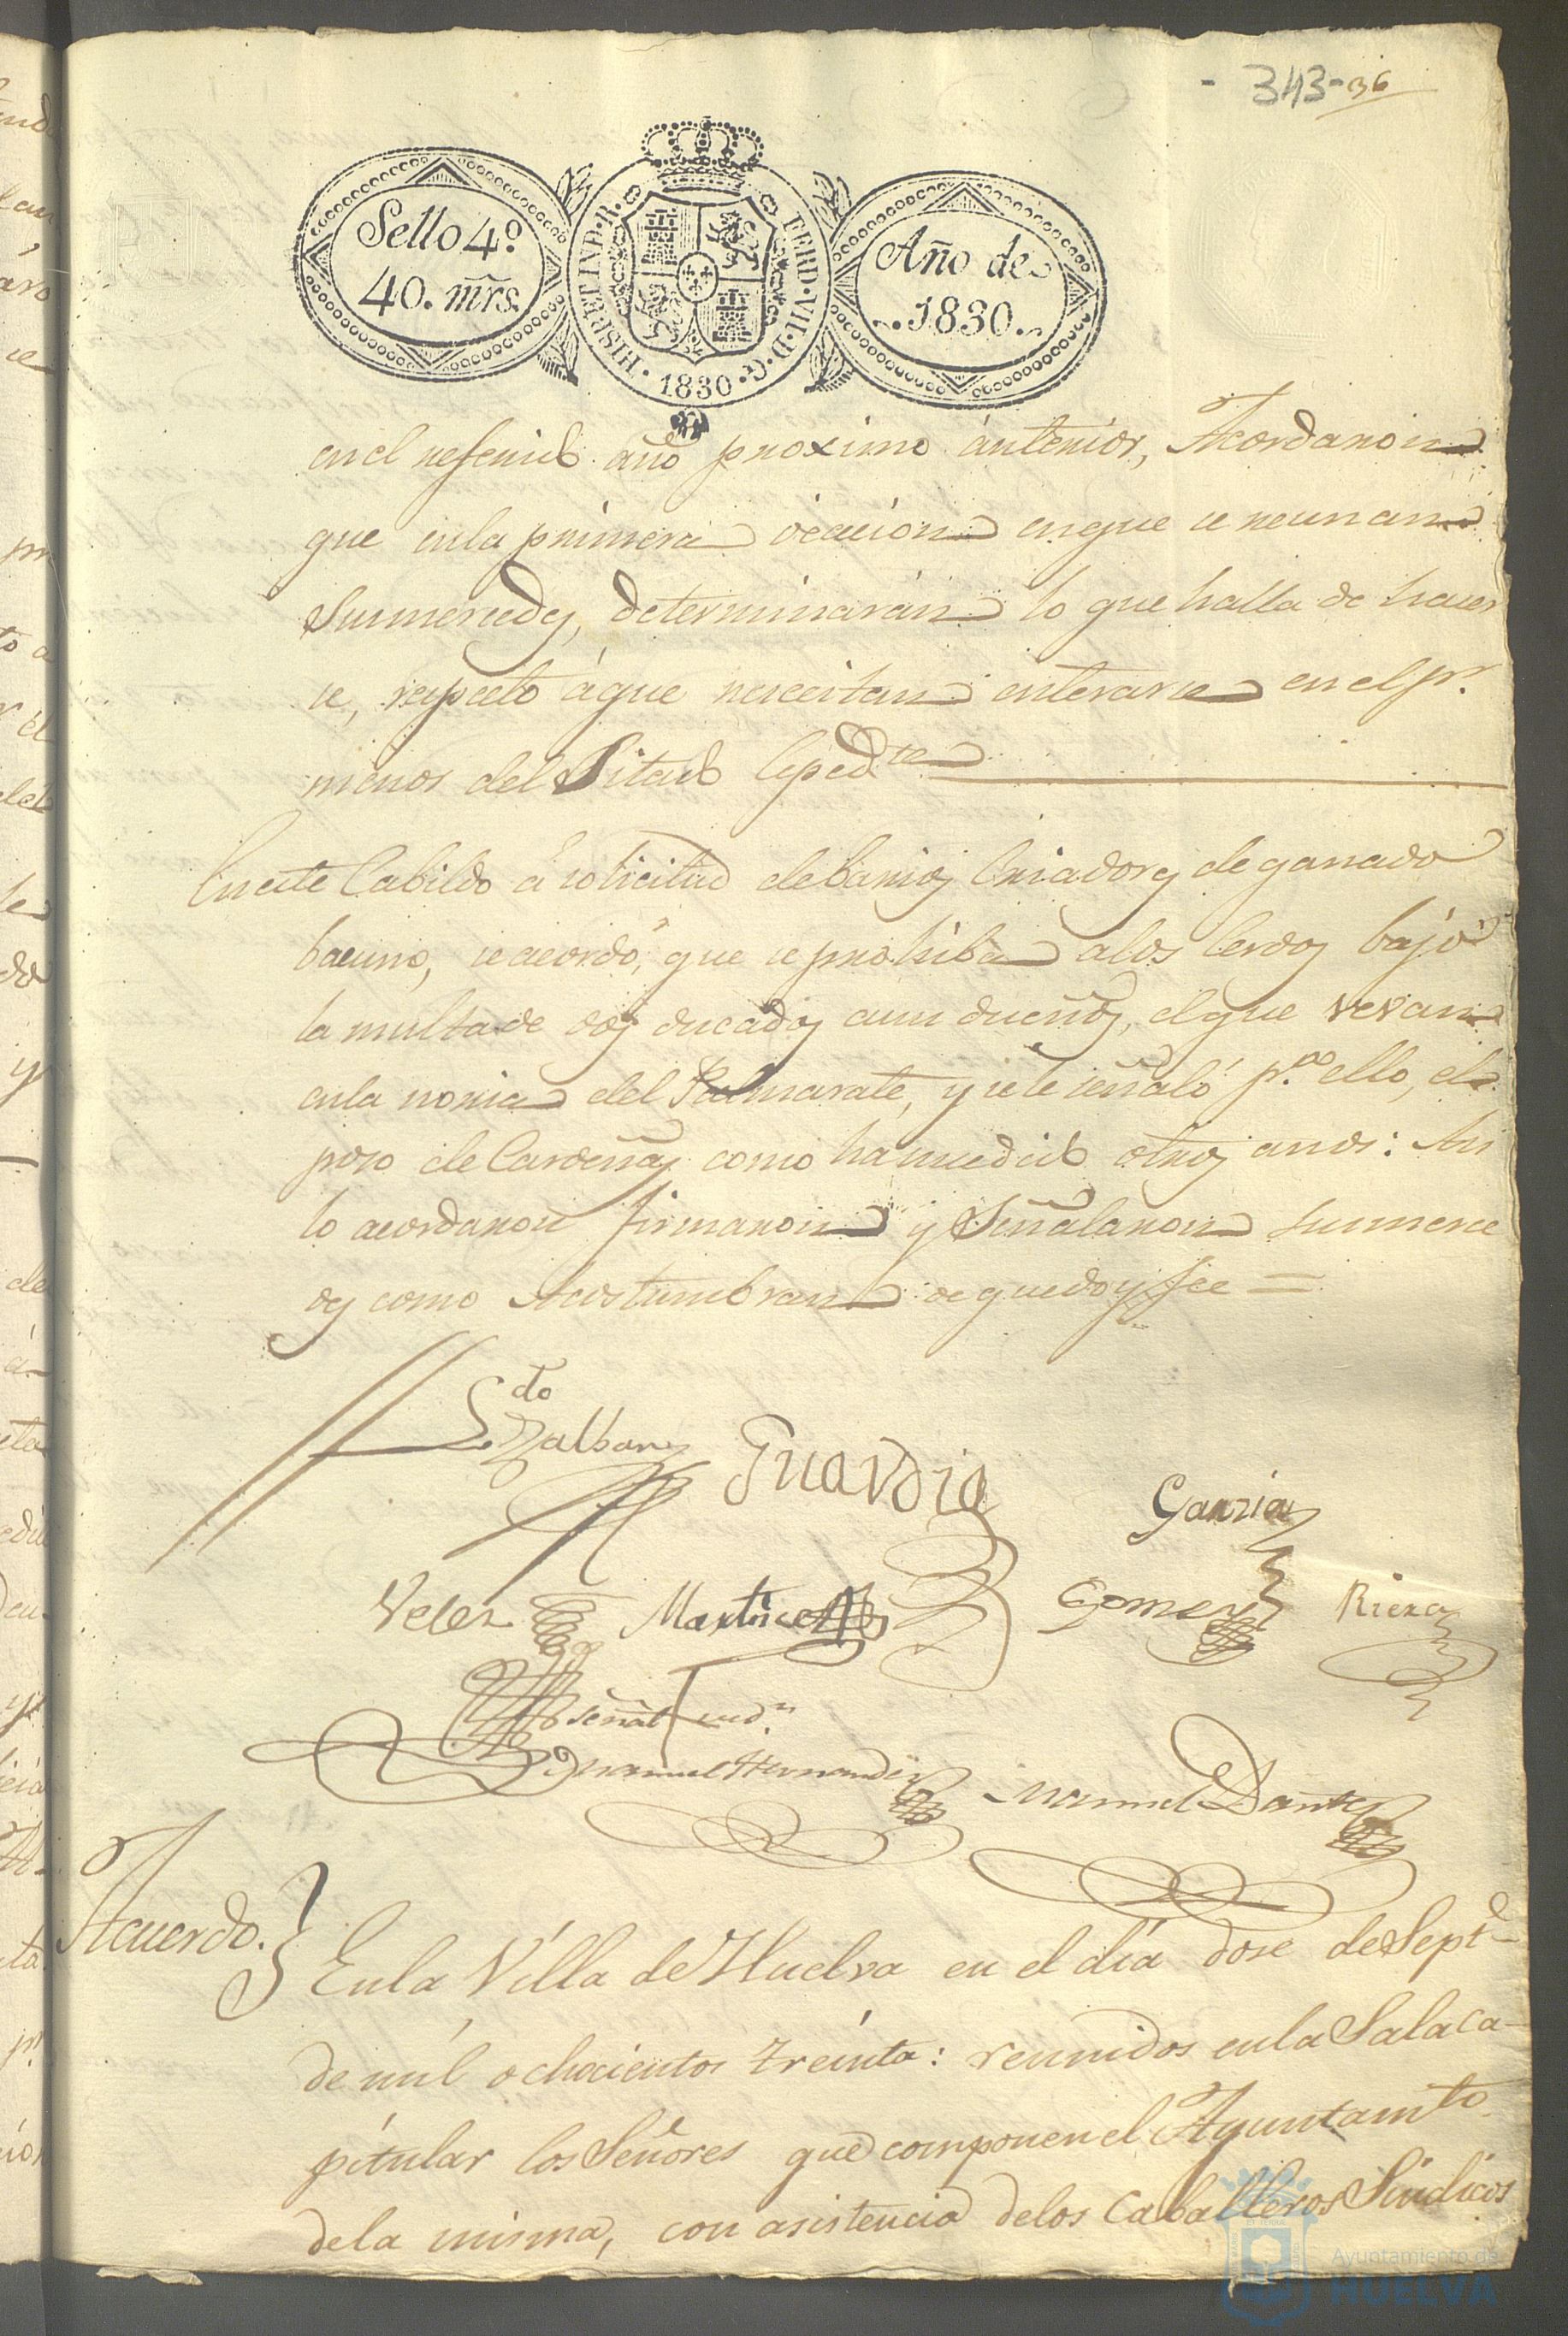 - 343 - 36
Sello 4º
40. mrs.
HISP. ET IND. R.
FERD. VII. D. G.
1830
Año de
1830.
en el referido año proximo ánterior, Acordaron
que enla primera ocacion enque se reunan
Sus mercedes, determinarán lo que halla de hacer
se, respecto áque necesitan enterarse en el pr.
menos del Sitado Expedte
Eneste Cabildo á solicitud de barios Criadores de ganado
bacuno, se acordó, que se prohiba alos Cerdos bajó
la multa de dos ducados asus dueños, el que vevan
enla noria del Palmarate, y se le señaló p.ª ello, el
poso de Cardeñas como ha susedido otros anos: Asi
lo acordaron firmaron y Señalaron sus merce
des como Acostumbran de que doy fee =
Ldo
Zalbary
Guardia
Garzia
Velez
Martinez
Gomez
Riera
Señal
Manuel Hernandez
Manuel Dante
Acuerdo. } Enla Villa de Huelva en el día dose de Septe
de mil ochocientos treinta: reunidos enla Sala ca-
pitular los Señores que componen el Ayuntamto
dela misma, con asistencia delos Caballeros Sindicos
Ayuntamiento de
HUELVA